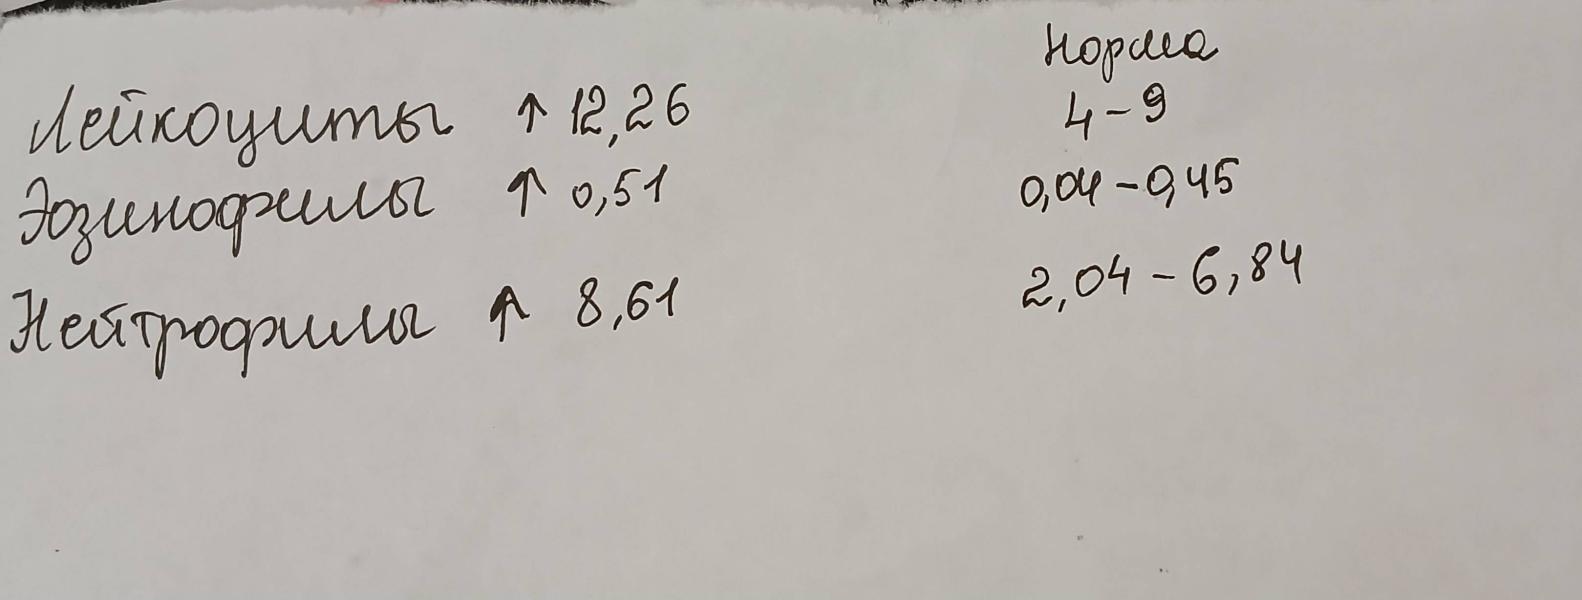 Норма
Лейкоциты ↑ 12,26 4 - 9
Эозинофилы ↑ 0,51 0,04 - 0,45
Нейтрофилы ↑ 8,61 2,04 - 6,84